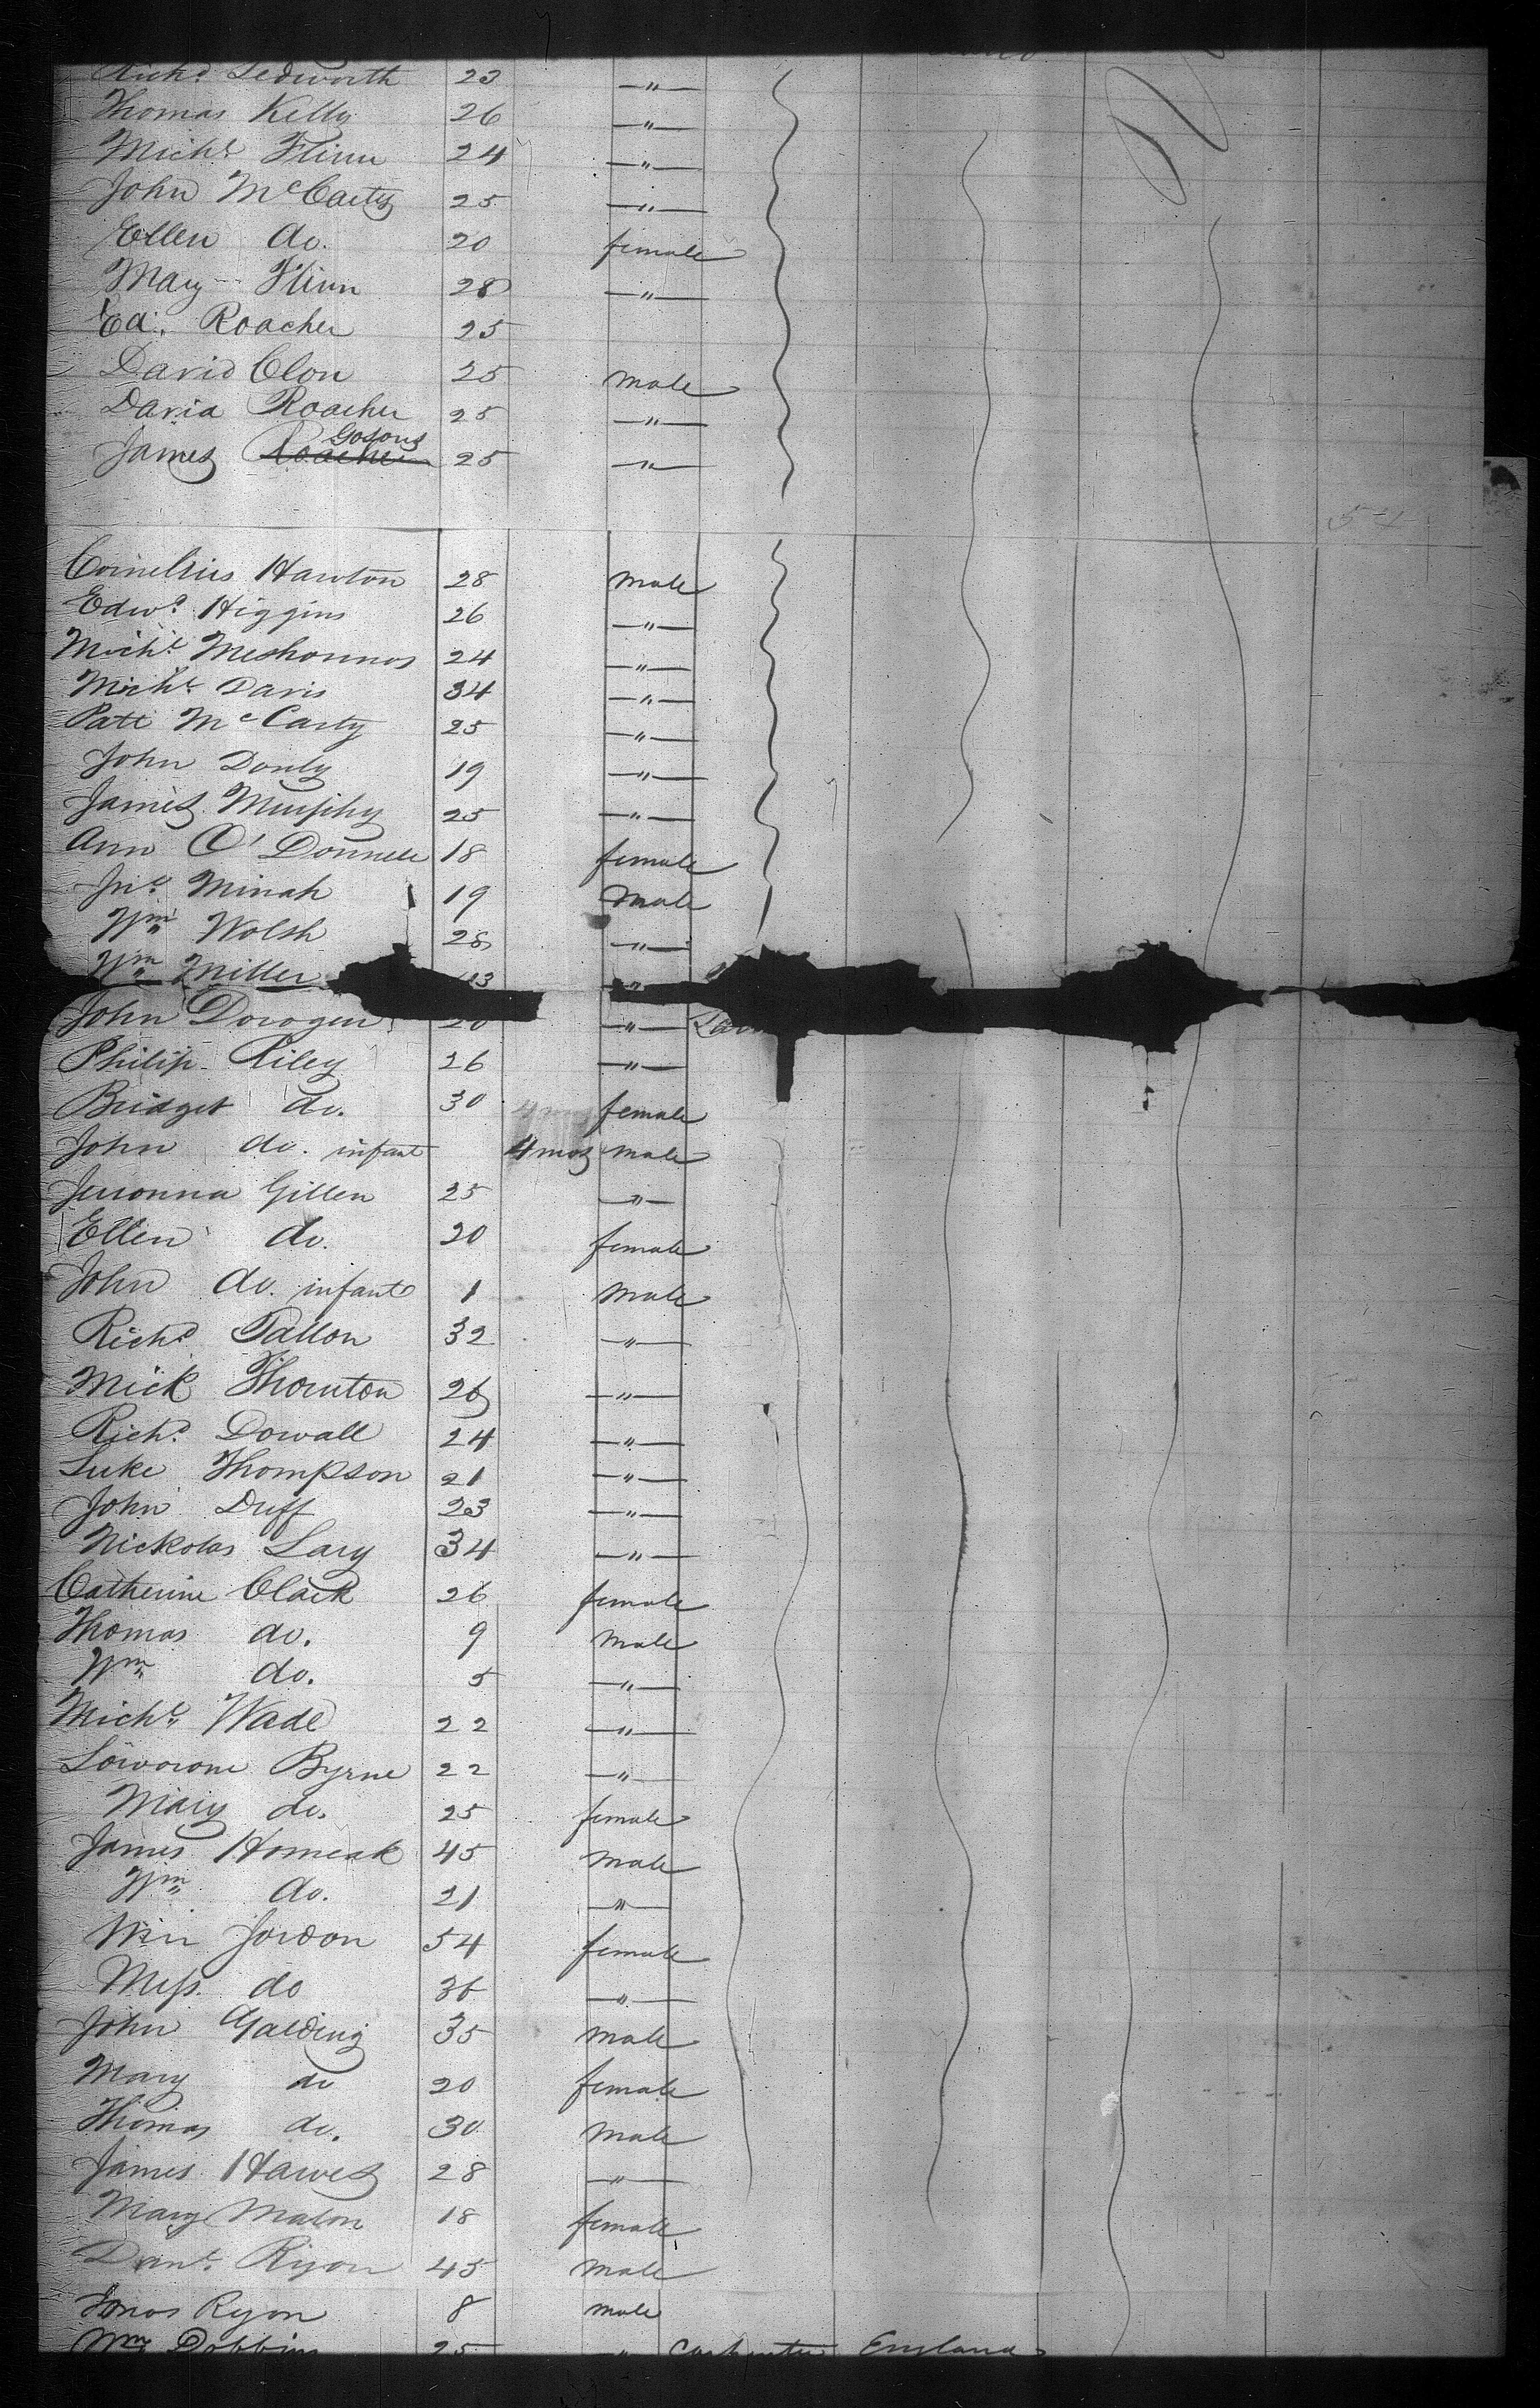 Rich.d Ledworth 23 —"—
Thomas Kelly 26 —"—
Mich.l Flinn 24 —"—
John McCarty 25 —"—
Ellen do. 20 female
Mary Flinn 28 —"—
Ed. Roacher 25
David Clon 25 male
David Roacher 25 —"—
James Roacher 25 —"—
54
Cornelius Hawton 28 male
Edw.d Higgins 26 —"—
Mich.l Meshonnos 24 —"—
Mich.l Davis 34 —"—
Patt McCarty 25 —"—
John Donly 19 —"—
James Murphy 25 —"—
Ann O'Donnell 18 female
Jn.o Minah 19 male
Wm Wolsh 28 —"—
Wm Miller
John Dorogen 20 —"—
Philip Riley 26 —"—
Bridget do. 30 female
John do. infant 4 mos male
Gillen 25 —"—
Ellen do. 20 female
John do. infant 1 male
Rich.d Tallon 32 —"—
Mick Thornton 26 —"—
Rich.d Dowall 24 —"—
Luke Thompson 21 —"—
John Duff 23 —"—
Nickolas Lary 34 —"—
Catherine Clark 26 female
Thomas do. 9 male
Wm do. 5 —"—
Mich.l Wade 22 —"—
Byrne 22 —"—
Mary do. 25 female
James Homeak 45 male
Wm do. 21 —"—
Jordon 54 female
Miss do 36 —"—
John Galding 35 male
Mary do 20 female
Thomas do. 30 male
James Hawes 28 —"—
Mary Malon 18 female
Danl. Ryon 45 male
Ryon 8 male
Wm Dobbins 25 " Carpenter England